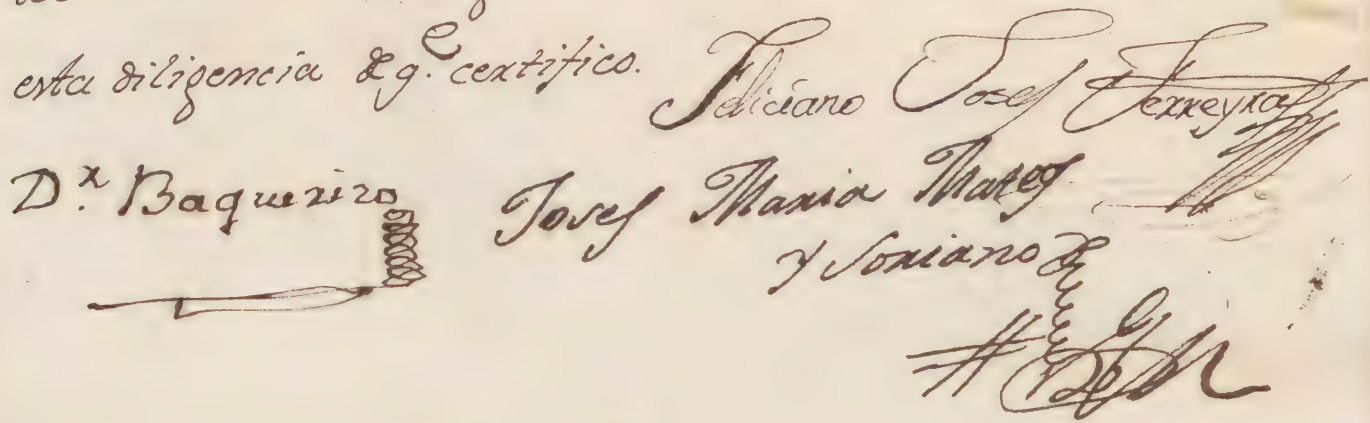 esta diligencia de q.e certifico.
Feliciano Josef Ferreyra
D.r Baquerizo
Josef Maria Mateos
y Soriano